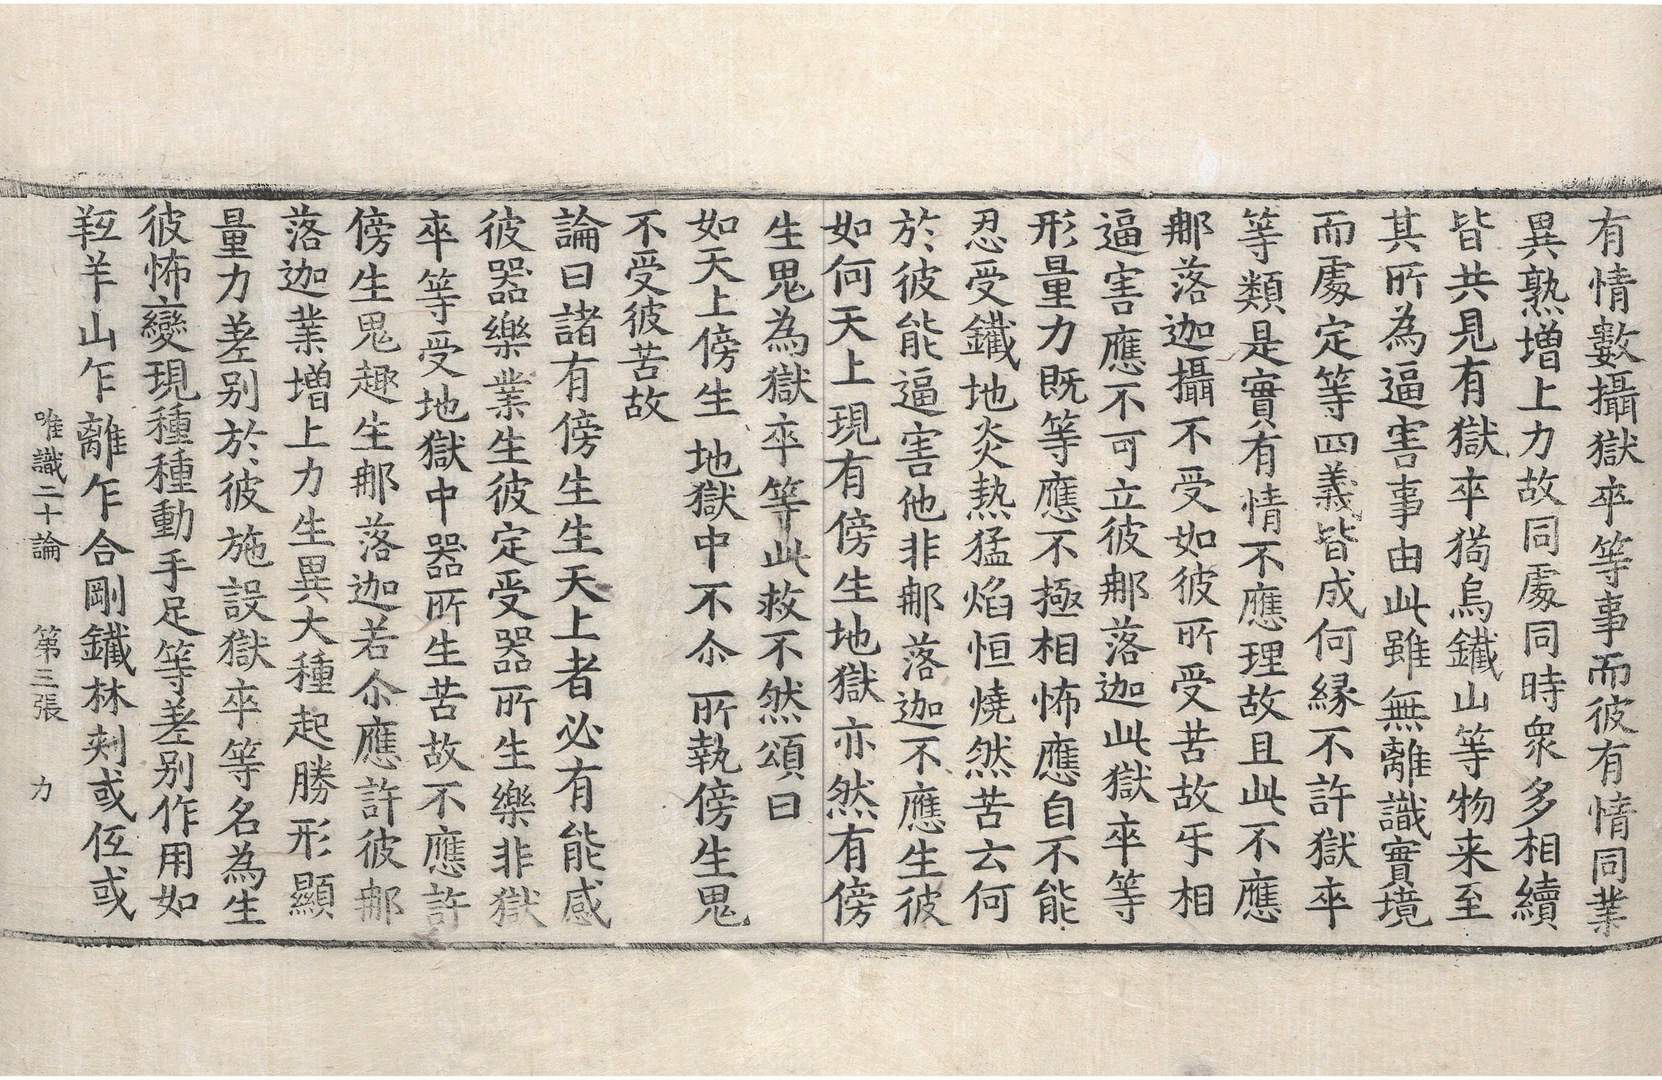 有情數攝獄卒等事而彼有情同業
異熟增上力故同處同時衆多相續
皆共見有獄卒猗烏鐵山等物来至
其所為逼害事由此雖無離識實境
而處定等四義皆成何縁不許獄卒
等類是實有情不應理故且此不應
郍落迦攝不受如彼所受苦故乐相
逼害應不可立彼郍落迦此獄卒等
形量力既等應不極相怖應自不能
忍受鐵地炎熱猛焰恒燒然苦云何
於彼能逼害他非郍落迦不應生彼
如何天上現有傍生地獄亦然有傍
生鬼為獄卒等此救不然頌曰
如天上傍生 地獄中不尒 所執傍生鬼
不受彼苦故
論曰諸有傍生生天上者必有能感
彼器樂業生彼定受器所生樂非獄
卒等受地獄中器所生苦故不應許
傍生鬼趣生郍落迦若尒應許彼郍
落迦業增上力生異大種起勝形顯
量力差别於彼施設獄卒等名為生
彼怖變現種種動手足等差别作用如
羝羊山乍離乍合剛鐵林刾或仾或
唯識二十論 第三張 力